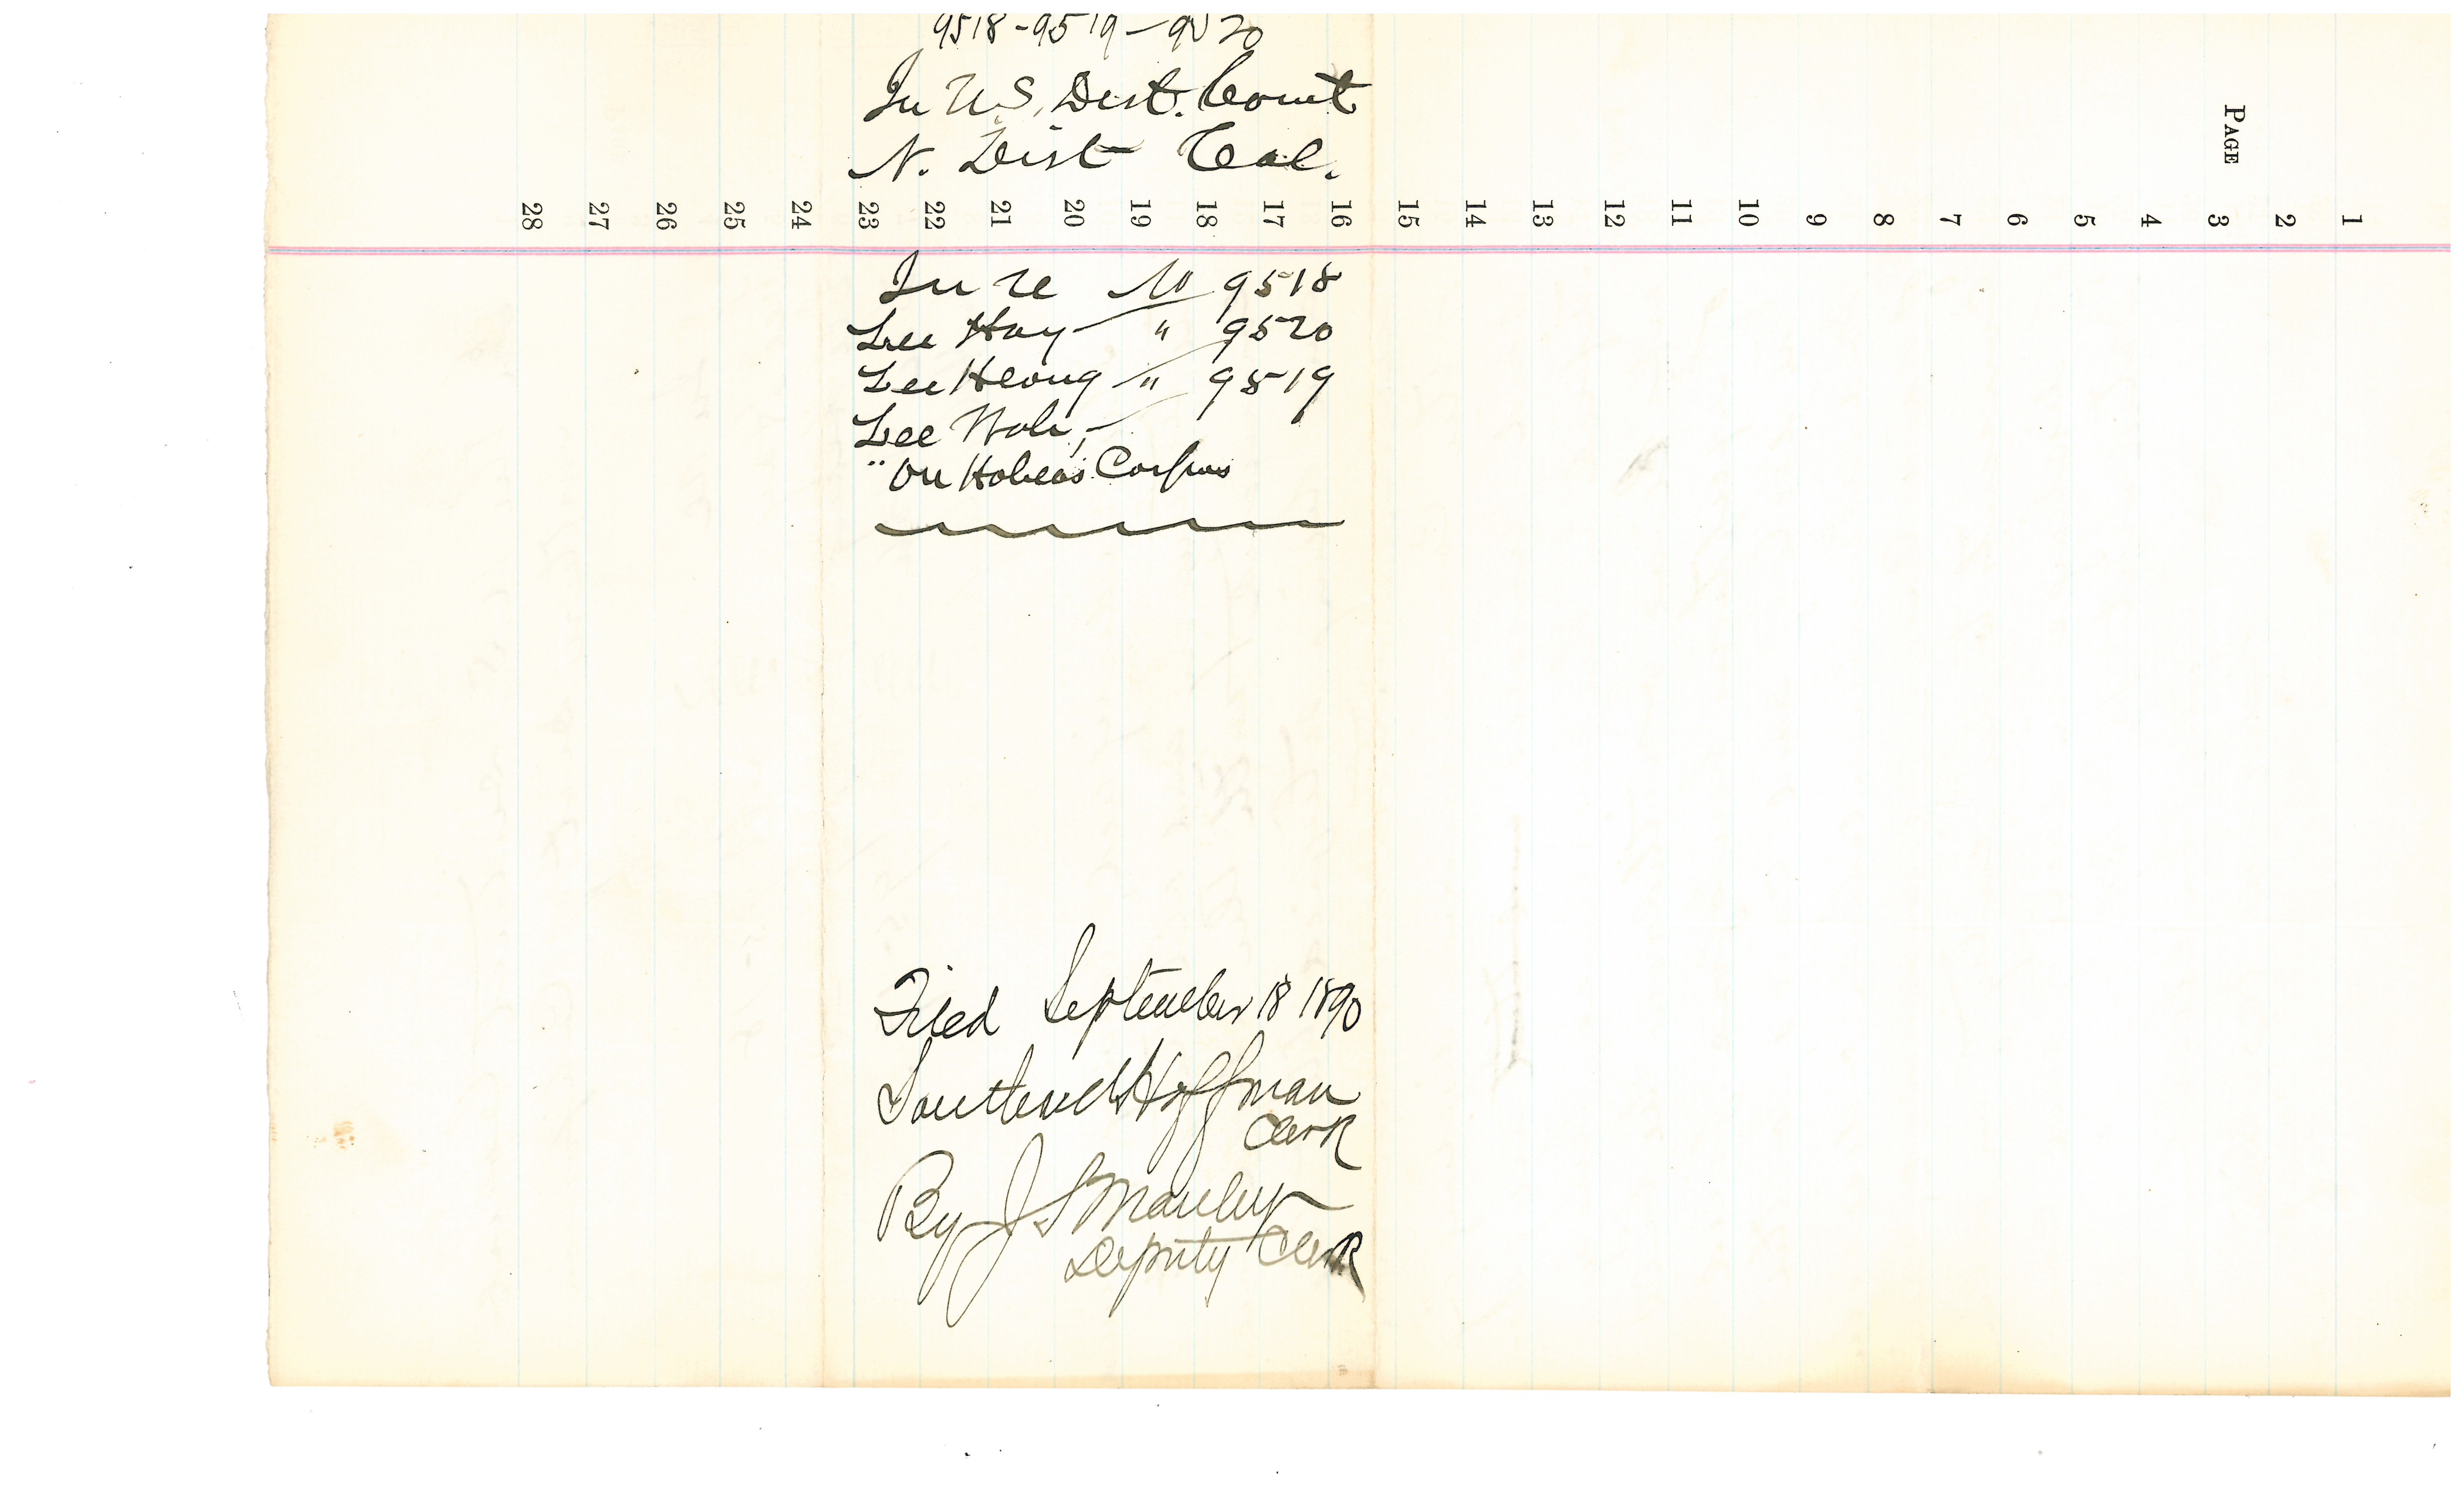 9518-9519-9520
In U.S. Dist. Court
N. Dist Cal.
PAGE
28 27 26 25 24 23 22 21 20 19 18 17 16 15 14 13 12 11 10 9 8 7 6 5 4 3 2 1
In re No 9518
Lee Hoy " 9520
Lee Heong " 9519
Lee Wah,
" On Habeas Corpus
Filed September 18 1890
Southard Hoffman
Clerk
By J S Manley
Deputy Clerk